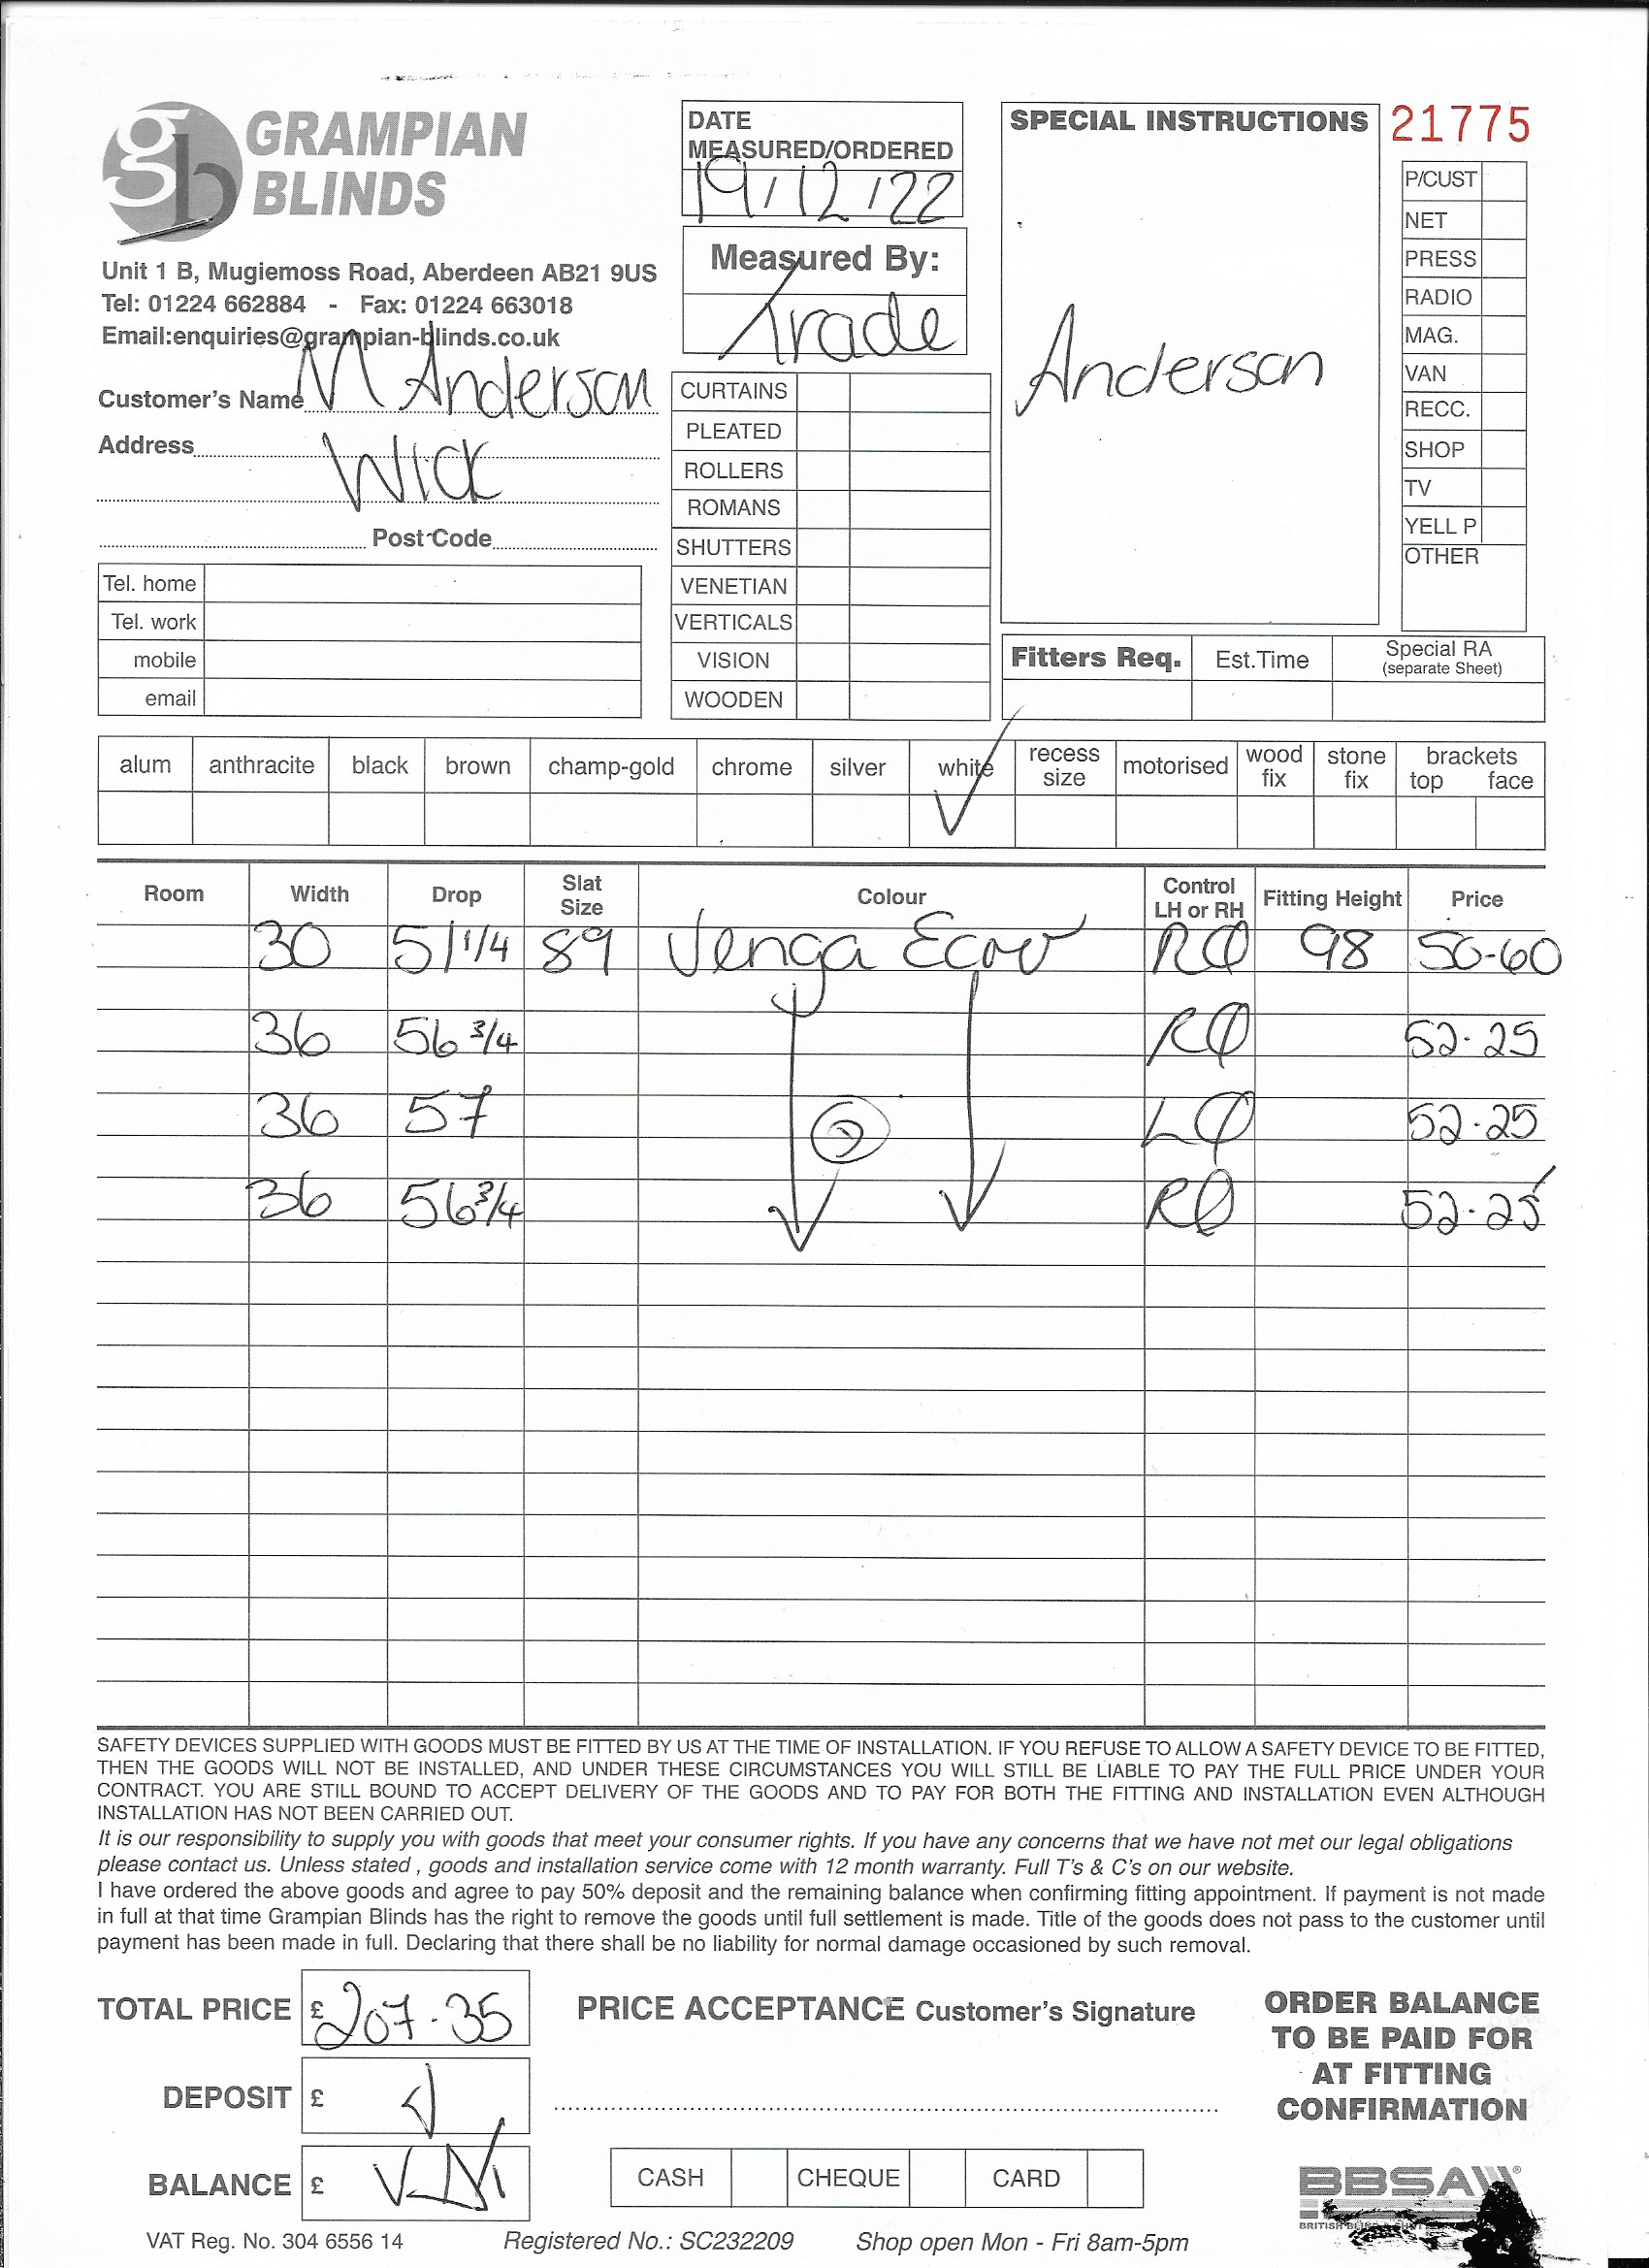 GRAMPIAN
BLINDS
Unit 1 B, Mugiemoss Road, Aberdeen AB21 9US
Tel: 01224 662884 - Fax: 01224 663018
Email:enquiries@grampian-blinds.co.uk
Customer's Name M Anderson
Address Wick
Post Code
Tel. home
Tel. work
mobile
email
DATE
MEASURED/ORDERED
19/12/22
Measured By:
Trade
CURTAINS
PLEATED
ROLLERS
ROMANS
SHUTTERS
VENETIAN
VERTICALS
VISION
WOODEN
SPECIAL INSTRUCTIONS
Anderson
21775
P/CUST
NET
PRESS
RADIO
MAG.
VAN
RECC.
SHOP
TV
YELL P
OTHER
Fitters Req. Est.Time Special RA
(separate Sheet)
alum anthracite black brown champ-gold chrome silver white recess size motorised wood fix stone fix brackets top face
Room Width Drop Slat Size Colour Control LH or RH Fitting Height Price
30 51 1/4 89 Venga Ecru 98 50-60
36 56 3/4 52-25
36 57 52-25
36 56 3/4 52-25
SAFETY DEVICES SUPPLIED WITH GOODS MUST BE FITTED BY US AT THE TIME OF INSTALLATION. IF YOU REFUSE TO ALLOW A SAFETY DEVICE TO BE FITTED,
THEN THE GOODS WILL NOT BE INSTALLED, AND UNDER THESE CIRCUMSTANCES YOU WILL STILL BE LIABLE TO PAY THE FULL PRICE UNDER YOUR
CONTRACT. YOU ARE STILL BOUND TO ACCEPT DELIVERY OF THE GOODS AND TO PAY FOR BOTH THE FITTING AND INSTALLATION EVEN ALTHOUGH
INSTALLATION HAS NOT BEEN CARRIED OUT.
It is our responsibility to supply you with goods that meet your consumer rights. If you have any concerns that we have not met our legal obligations
please contact us. Unless stated , goods and installation service come with 12 month warranty. Full T's & C's on our website.
I have ordered the above goods and agree to pay 50% deposit and the remaining balance when confirming fitting appointment. If payment is not made
in full at that time Grampian Blinds has the right to remove the goods until full settlement is made. Title of the goods does not pass to the customer until
payment has been made in full. Declaring that there shall be no liability for normal damage occasioned by such removal.
TOTAL PRICE £ 207-35
DEPOSIT £
BALANCE £
PRICE ACCEPTANCE Customer's Signature
CASH CHEQUE CARD
ORDER BALANCE
TO BE PAID FOR
AT FITTING
CONFIRMATION
BBSA
VAT Reg. No. 304 6556 14 Registered No.: SC232209 Shop open Mon - Fri 8am-5pm